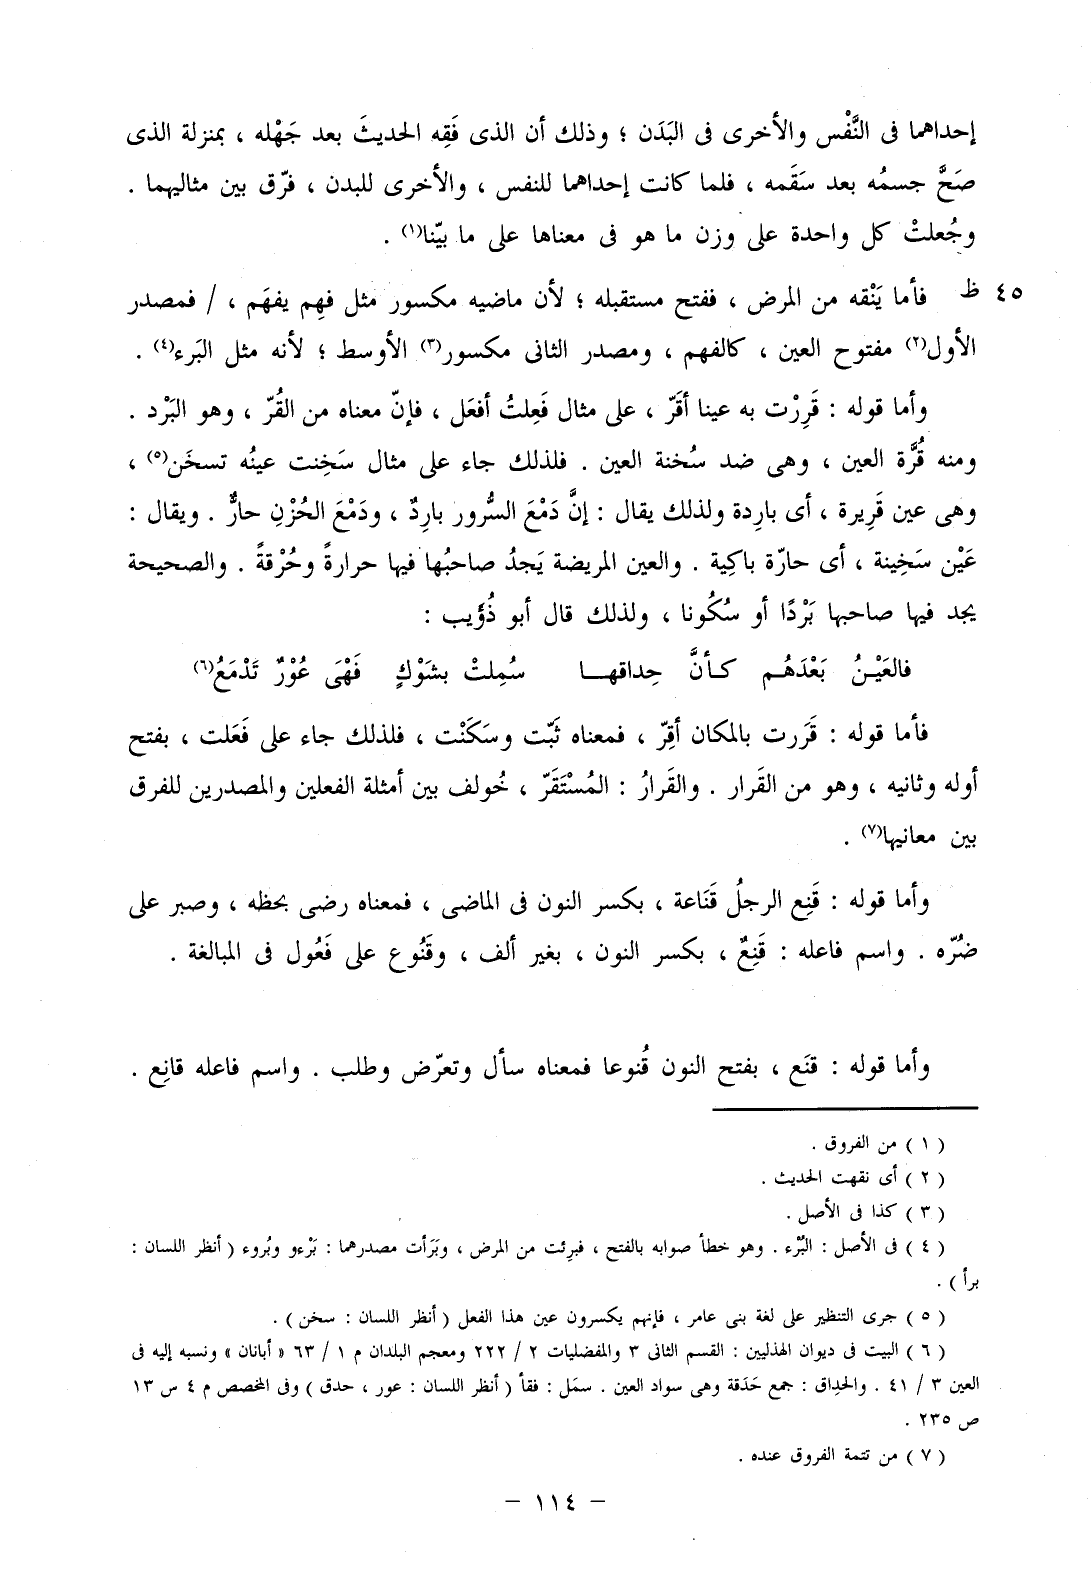 إحداهما فى النَّفْس والأخرى فى البَدَن ؛ وذلك أن الذى فَقِه الحديثَ بعد جَهْله ، بمنزلة الذى
صَحَّ جسمُه بعد سَقَمه ، فلما كانت إحداهما للنفس ، والأخرى للبدن ، فرّق بين مثاليهما .
وجُعلتْ كل واحدة على وزن ما هو فى معناها على ما بيّنا(١) .
٤٥ ظ فأما يَنْقه من المرض ، ففتح مستقبله ؛ لأن ماضيه مكسور مثل فهِم يفهَم ، / فمصدر
الأول(٢) مفتوح العين ، كالفهم ، ومصدر الثانى مكسور(٣) الأوسط ؛ لأنه مثل البَرء(٤) .
وأما قوله : قَرِرْت به عينا أقَرّ ، على مثال فَعِلتُ أفعَل ، فإنّ معناه من القُرّ ، وهو البَرْد .
ومنه قُرَّة العين ، وهى ضد سُخنة العين . فلذلك جاء على مثال سَخِنت عينُه تسخَن(٥) ،
وهى عين قَرِيرة ، أى بارِدة ولذلك يقال : إنَّ دَمْعَ السُّرور بارِدٌ ، ودَمْعَ الحُزْنِ حارٌّ . ويقال :
عَيْن سَخِينة ، أى حارّة باكِية . والعين المريضة يَجدُ صاحبُها فيها حرارةً وحُرْقةً . والصحيحة
يجد فيها صاحبها بَرْدًا أو سُكُونا ، ولذلك قال أبو ذُؤَيب :
فالعَيْنُ بَعْدَهُم كأنَّ حِداقها سُمِلتْ بشَوْكٍ فَهْىَ عُوْرٌ تَدْمَعُ(٦)
فأما قوله : قَرَرت بالمكان أقِرّ ، فمعناه ثَبّت وسَكَنْت ، فلذلك جاء على فَعَلت ، بفتح
أوله وثانيه ، وهو من القَرار . والقَرارُ : المُسْتَقَرّ ، خُولف بين أمثلة الفعلين والمصدرين للفرق
بين معانيها(٧) .
وأما قوله : قَنِع الرجلُ قَنَاعة ، بكسر النون فى الماضى ، فمعناه رضى بحظه ، وصبر على
ضُرّه . واسم فاعله : قَنِعٌ ، بكسر النون ، بغير ألف ، وقَنُوع على فَعُول فى المبالغة .
وأما قوله : قنَع ، بفتح النون قُنوعا فمعناه سأل وتعرّض وطلب . واسم فاعله قانِع .
( ١ ) من الفروق .
( ٢ ) أى نقهت الحديث .
( ٣ ) كذا فى الأصل .
( ٤ ) فى الأصل : البُرْء . وهو خطأ صوابه بالفتح ، فبرِئت من المرض ، وبَرَأت مصدرهما : بَرْءو وبُروء ( أنظر اللسان :
برأ ) .
( ٥ ) جرى التنظير على لغة بنى عامر ، فإنهم يكسرون عين هذا الفعل ( أنظر اللسان : سخن ) .
( ٦ ) البيت فى ديوان الهذليين : القسم الثانى ٣ والمفضليات ٢ / ٢٢٢ ومعجم البلدان م ١ / ٦٣ « أبانان » ونسبه إليه فى
العين ٣ / ٤١ . والحِداق : جمع حَدَقة وهى سواد العين . سمَل : فقأ ( أنظر اللسان : عور ، حدق ) وفى المخصص م ٤ س ١٣
ص ٢٣٥ .
( ٧ ) من تتمة الفروق عنده .
– ١١٤ –